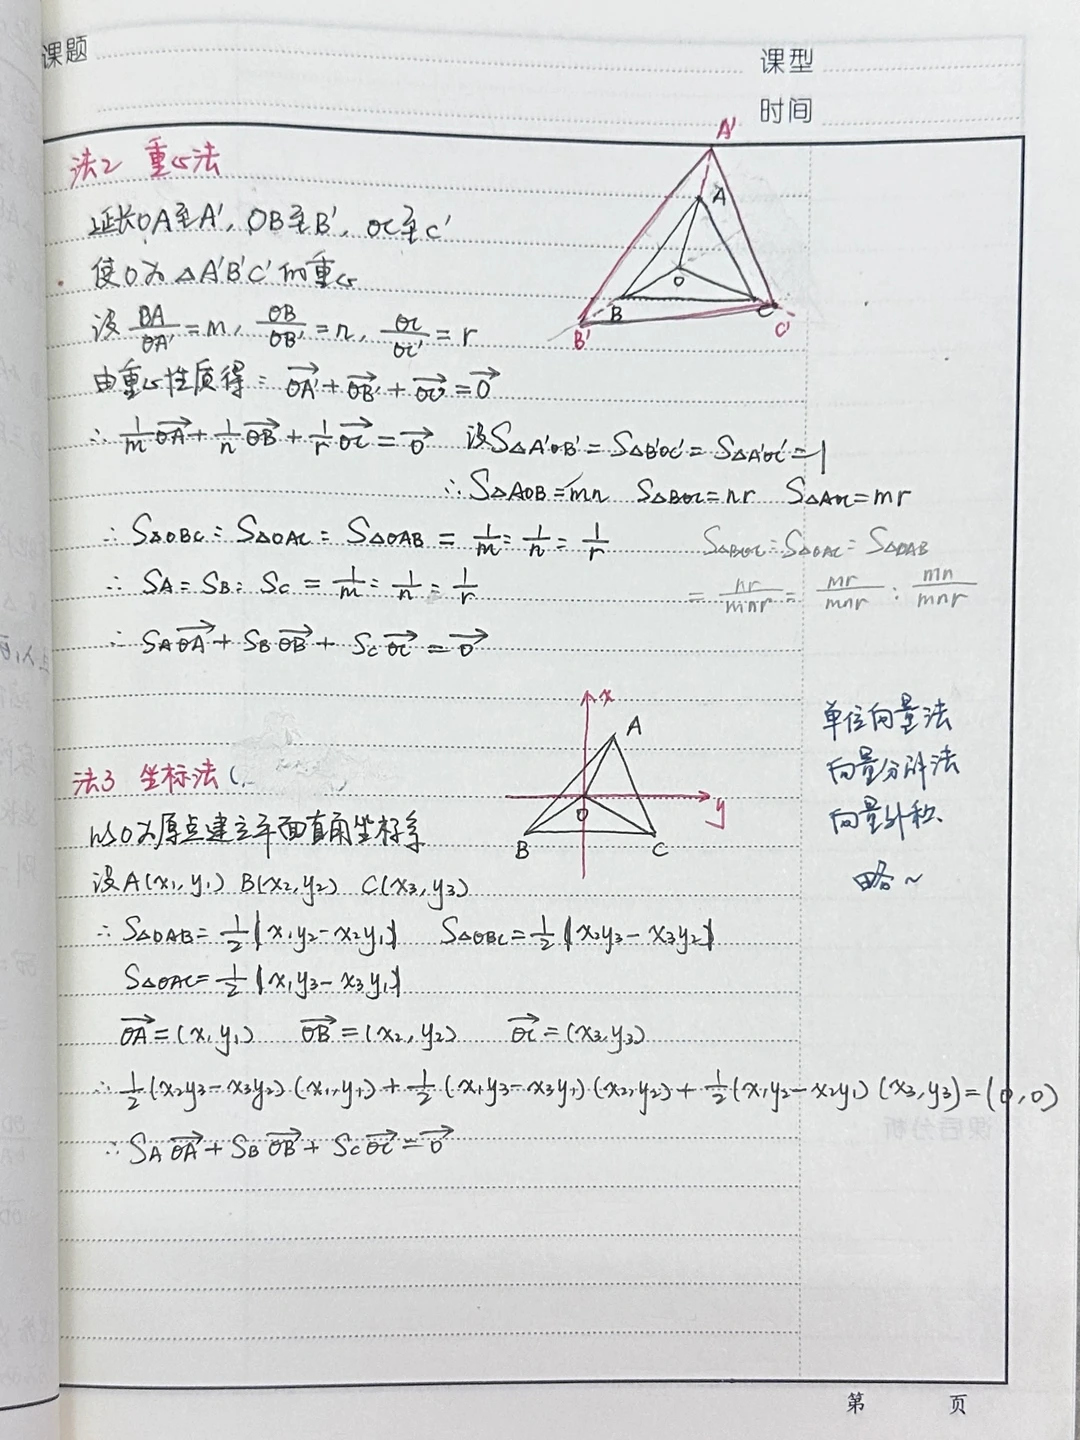 课题
课型
时间
法2 重心法
延长OA至A', OB至B', OC至C'
使O为△A'B'C'的重心
设 OA/OA' = m, OB/OB' = n, OC/OC' = r
由重心性质得: OA'→ + OB'→ + OC'→ = 0→
∴ 1/m OA→ + 1/n OB→ + 1/r OC→ = 0→ 设S△A'OB' = S△B'OC' = S△A'OC' = 1
∴ S△AOB = mn S△BOC = nr S△AOC = mr
∴ S△OBC : S△OAC : S△OAB = 1/m : 1/n : 1/r
S△BOC : S△OAC : S△OAB
= nr/mnr : mr/mnr : mn/mnr
∴ SA : SB : SC = 1/m : 1/n : 1/r
∴ SA OA→ + SB OB→ + SC OC→ = 0→
A'
A
O
B
C
B'
C'
法3 坐标法 (
以O为原点建立平面直角坐标系
设A(x1,y1) B(x2,y2) C(x3,y3)
∴ S△OAB = 1/2 |x1y2 - x2y1| S△OBC = 1/2 |x2y3 - x3y2|
S△OAC = 1/2 |x1y3 - x3y1|
OA→ = (x1,y1) OB→ = (x2,y2) OC→ = (x3,y3)
∴ 1/2 (x2y3 - x3y2)·(x1,y1) + 1/2 (x1y3 - x3y1)(x2,y2) + 1/2 (x1y2 - x2y1)(x3,y3) = (0,0)
∴ SA OA→ + SB OB→ + SC OC→ = 0→
x
A
y
O
B
C
单位向量法
向量分解法
向量外积
略~
第 页